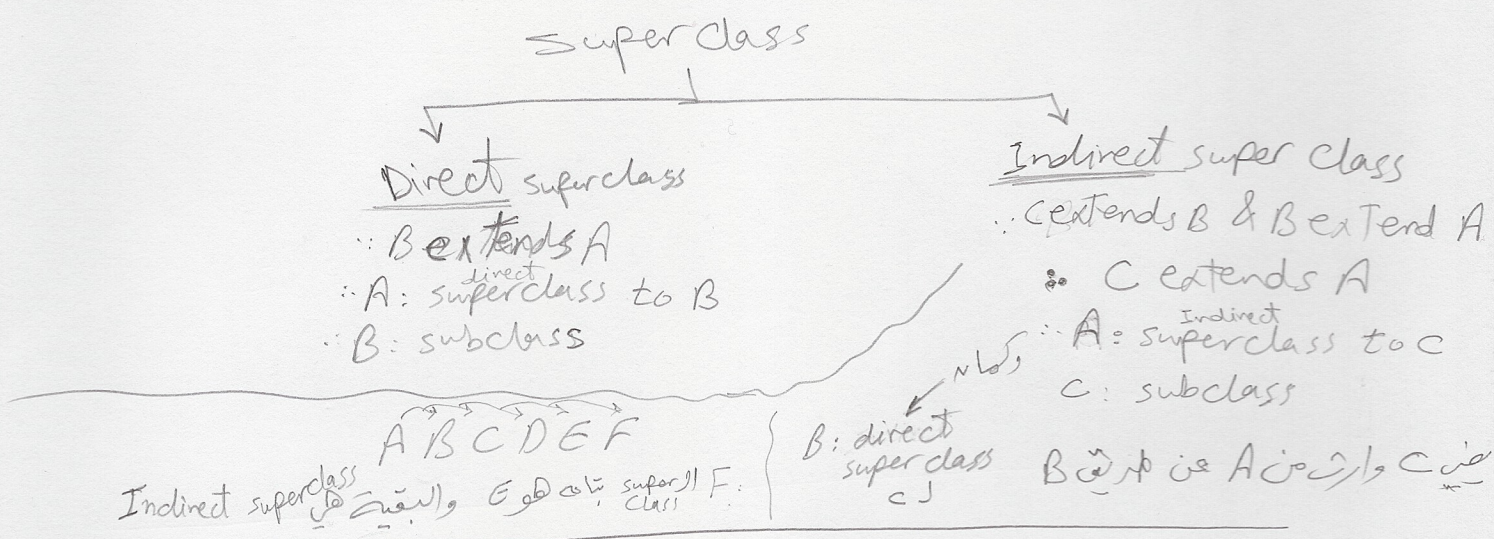 Super Class
Direct superclass
∵ B extends A
∴ A: direct superclass to B
∴ B: subclass
Indirect super class
∵ C extends B & B extend A
∴ C extends A
∴ A: Indirect superclass to C
C: subclass
وكمان
B: direct
super class
لـ C
يعني C وارث من A عن طريق B
A B C D E F
F: الـ super class بتاعه هو E والبقية هي Indirect superclass